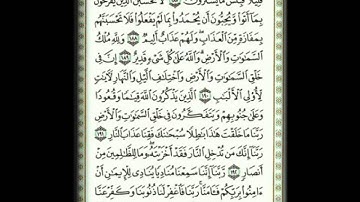 قَلِيلًا فَبِئْسَ مَا يَشْتَرُونَ ١٨٧ لَا تَحْسَبَنَّ الَّذِينَ يَفْرَحُونَ
بِمَا أَتَوا وَّيُحِبُّونَ أَن يُحْمَدُوا بِمَا لَمْ يَفْعَلُوا فَلَا تَحْسَبَنَّهُم
بِمَفَازَةٍ مِّنَ الْعَذَابِ وَلَهُمْ عَذَابٌ أَلِيمٌ ١٨٨ وَلِلَّهِ مُلْكُ
السَّمَٰوَٰتِ وَالْأَرْضِ وَاللَّهُ عَلَىٰ كُلِّ شَيْءٍ قَدِيرٌ ١٨٩ إِنَّ فِي
خَلْقِ السَّمَٰوَٰتِ وَالْأَرْضِ وَاخْتِلَٰفِ الَّيْلِ وَالنَّهَارِ لَءَايَٰتٍ
لِّأُولِي الْأَلْبَٰبِ ١٩٠ الَّذِينَ يَذْكُرُونَ اللَّهَ قِيَٰمًا وَقُعُودًا
وَعَلَىٰ جُنُوبِهِمْ وَيَتَفَكَّرُونَ فِي خَلْقِ السَّمَٰوَٰتِ وَالْأَرْضِ
رَبَّنَا مَا خَلَقْتَ هَٰذَا بَٰطِلًا سُبْحَٰنَكَ فَقِنَا عَذَابَ النَّارِ ١٩١
رَبَّنَا إِنَّكَ مَن تُدْخِلِ النَّارَ فَقَدْ أَخْزَيْتَهُ وَمَا لِلظَّٰلِمِينَ مِنْ
أَنصَارٍ ١٩٢ رَّبَّنَا إِنَّنَا سَمِعْنَا مُنَادِيًا يُنَادِي لِلْإِيمَٰنِ أَنْ
ءَامِنُوا بِرَبِّكُمْ فَـَٔامَنَّا رَبَّنَا فَاغْفِرْ لَنَا ذُنُوبَنَا وَكَفِّرْ عَنَّا